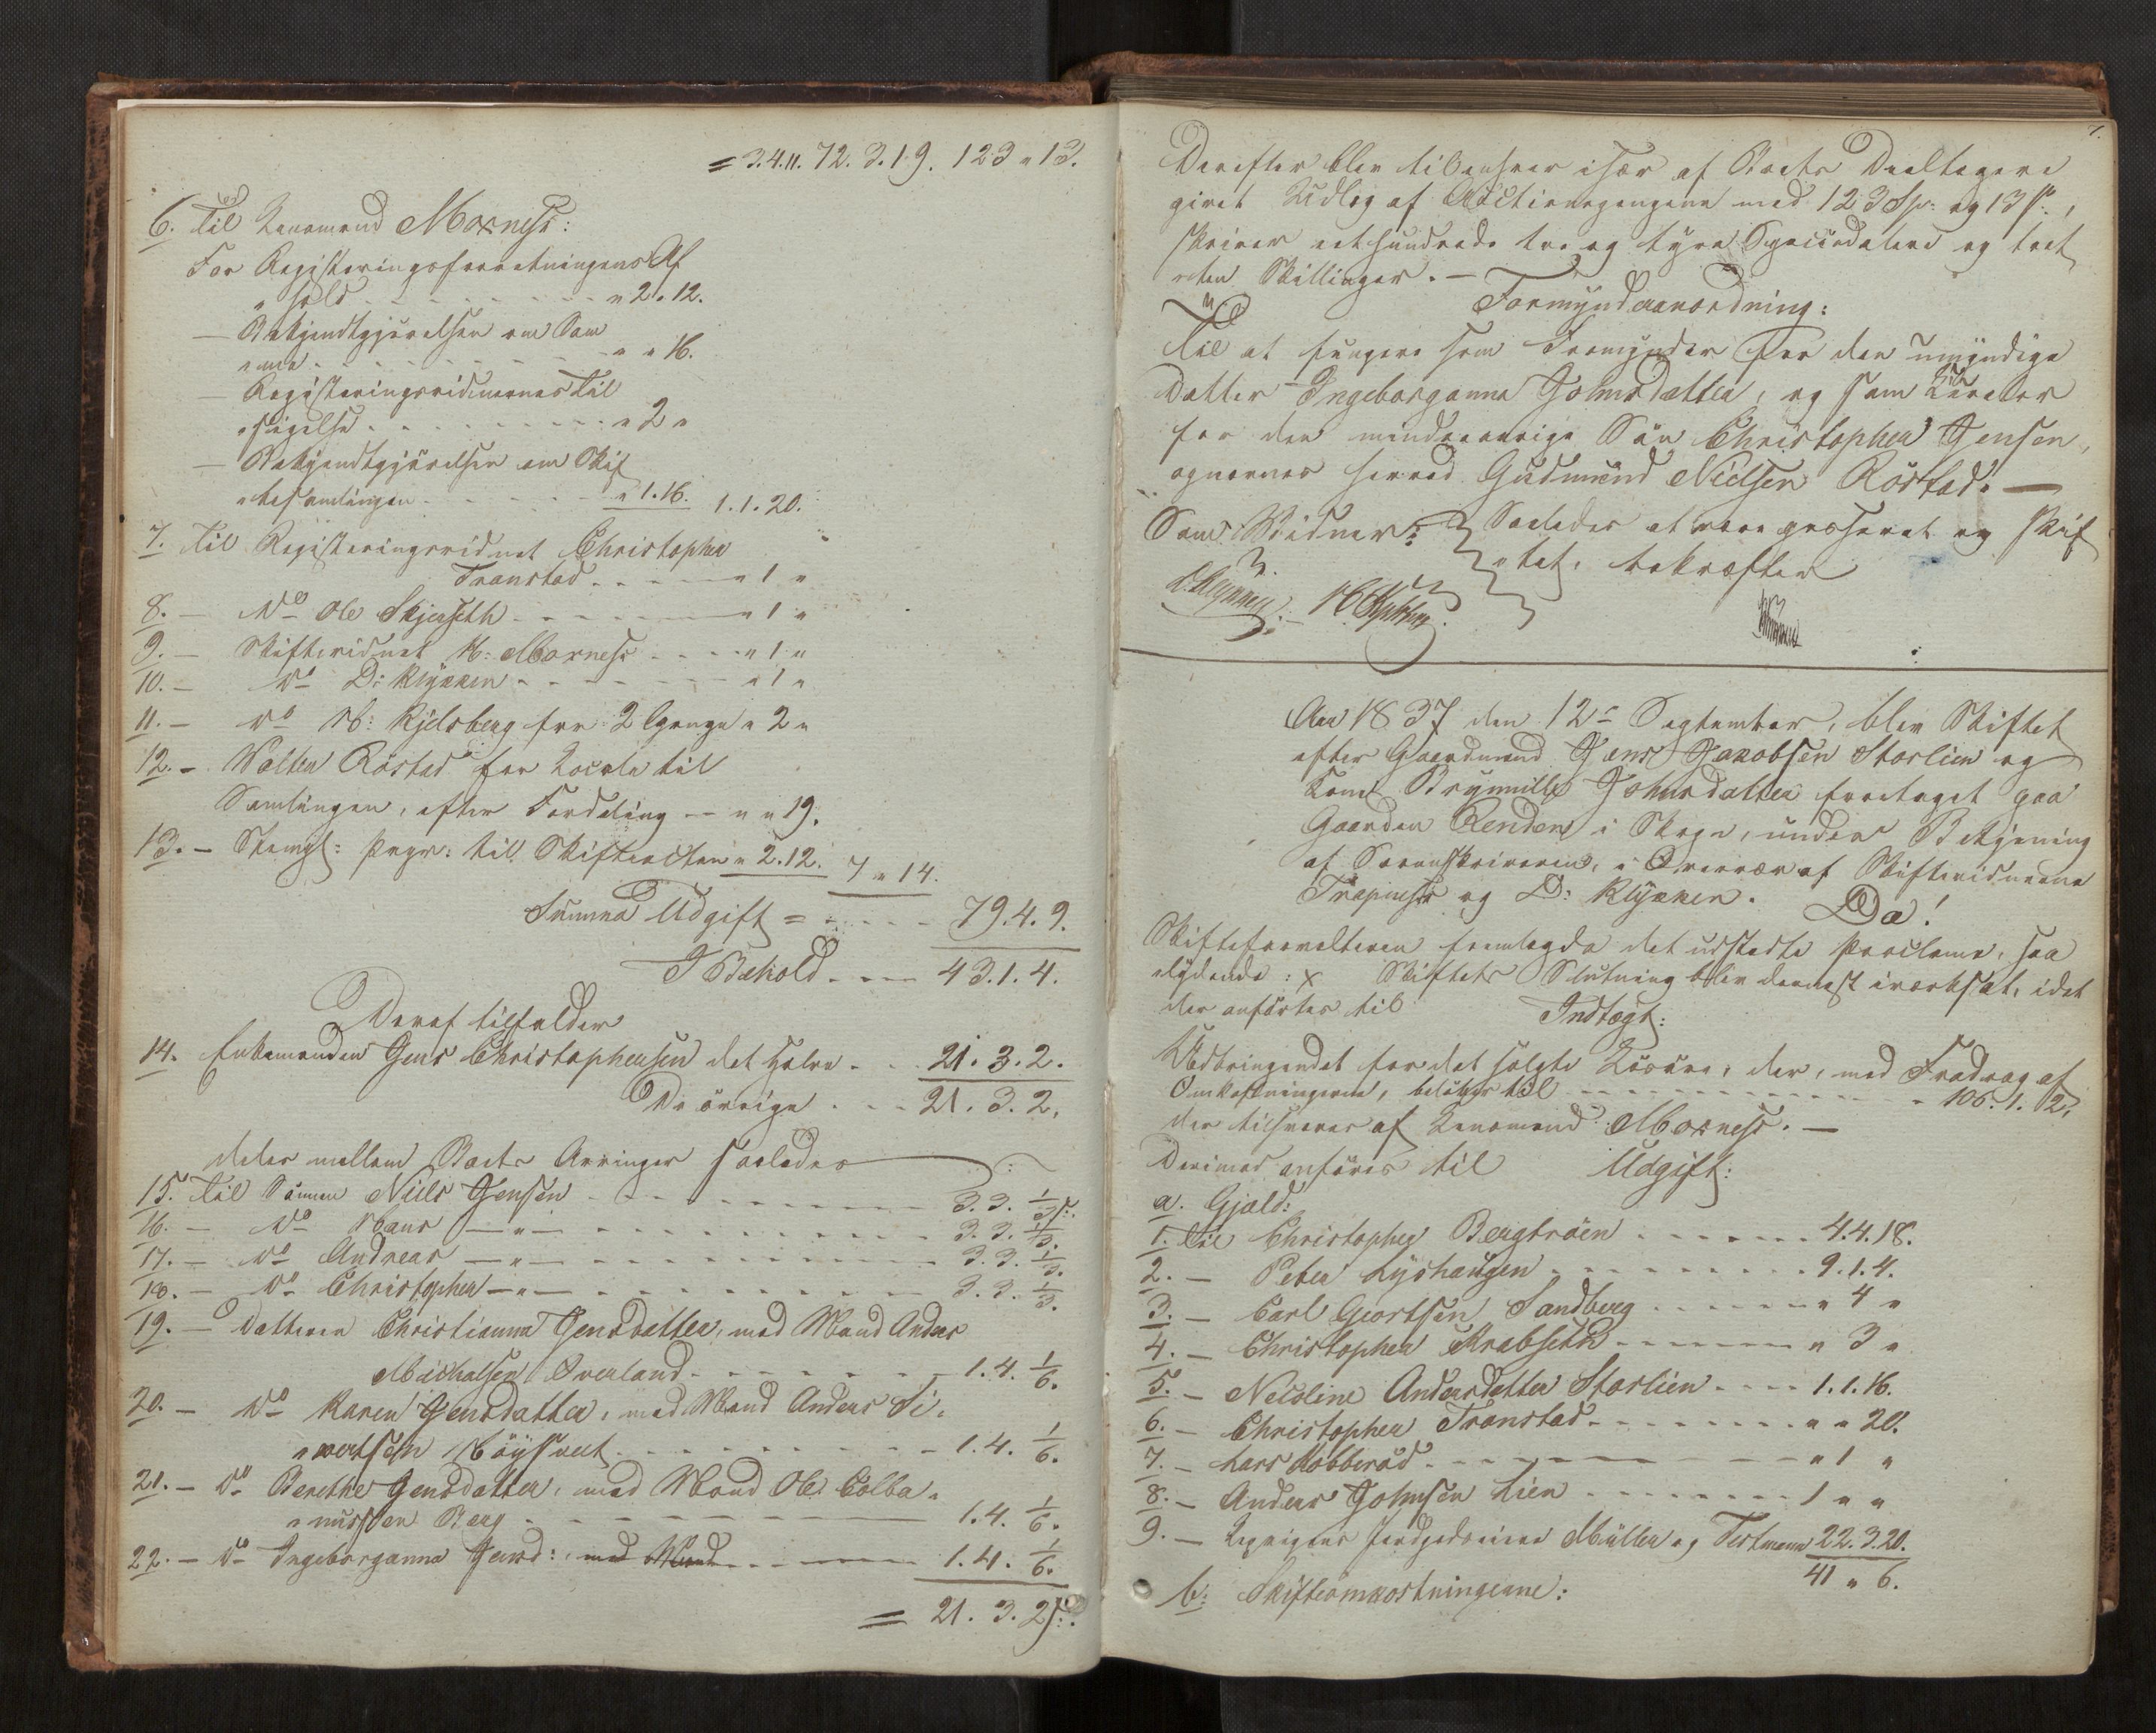 = 3.4.11. 72.3.19. 123 " 13.
6. Til Lensmand Moxness:
For Registeringsforretningens Af
"hold - - - - - " 2. 12.
— Bekjendtgjørelsen om Sam
"me - - - - - " " 16.
— Registeringsvidnernes Til
"sigelse - - - - - " 2 "
— Bekjendtgjørelsen om Skif
"tesamlingen - - - - - " 1. 16. 1. 1. 20.
7. Til Registeringsvidnet Christopher
Transtad - - - - " 1 "
8. — do Ole Skjerseth - - - - " 1 "
9. — Skiftevidnet H: Moxness - - - - " 1 "
10. — do D: Klykken - - - - " 1 "
11. — do H: Kjelsberg for 2 Gange " 2 "
12. — Volten Röstad for Locale til
Samlingen, efter Fordeling — " " 19.
13. — Stempl: Papr: til Skifteacten " 2. 12. 7 " 14.
Summa Udgift = - - - - 79. 4. 9.
I Behold - - - 43. 1. 4.
Deraf tilfalder
14. Enkemanden Jens Christophersen det halve - - - 21. 3. 2.
De övrige - - - 21. 3. 2.
deles mellem Boets Arvinger saaledes
15. Til Sönnen Niels Jensen - - - - 3. 3. 1/3 s:
16. — do Hans — " — - - - - 3. 3. 1/3.
17. — do Andreas — " — - - - - 3. 3. 1/3.
18. — do Christopher — " — - - - - 3. 3. 1/3.
19. — Datteren Christianna Jensdatter, med Mand Anders
Michalsen Overland - - - - 1. 4. 1/6.
20. — do Karen Jensdatter, med Mand Anders Si"
"vertsen Höysveet - - - - 1. 4. 1/6.
21. — do Berethe Jensdatter, med Mand Ole Colbe"
"nussen Berg - - - - 1. 4. 1/6.
22. — do Ingeborganna Jensd: med Mand - - - - 1. 4. 1/6.
= 21. 3. 2 s:
7.
Derefter blev tilenhver især af Boets Deeltagere
givet Udlæg af Auctionspengene med 123 Sp: og 13 s:,
skriver eethundrede tre og tyve Speciedalere og tret
"ten Skillinger. —
Formynderanordning:
Til at fungere som Formynder for den umyndige
Datter Ingeborganna Johnsdatter, og som Curator
for den mindreaarige Sön Christopher Jensen,
ognævnes herved Gudmund Nielsen Röstad. —
Som Vidner: Saaledes at være passeret og skif
"tet, bekræfter
D. Klykken. H Kjelsberg.
Aar 1837 den 12te September, blev Skiftet
efter Gaardmand Jens Jakobsen Storlien og
Kone Brynnille Johnsdatter foretaget paa
Gaarden Renden i Skogn, under Betjening
af Sorenskriveren, i Overvær af Skiftevidnerne
Trapness og D: Klykken. Da!
Skifteforvalteren fremlagde det udstedte Proclama, saa
"lydende: x Skiftets Slutning blev dernæst iværksat, idet
der anførtes til Indtægt:
Udbringendet for det solgte Løsøre, der, med Fradrag af
Omkostningerne, beløber til - - - - " 106. 1. 12.
der tilsvares af Lensmand Moxness. —
Derimod anføres til Udgift:
a. Gjæld:
1. Til Christopher Bergtröen - - - - 4. 4. 18.
2. — Peter Lyshaugen - - - - 9. 1. 4.
3. — Carl Geortsen Sandberg - - - - " 4 "
4. — Christopher Krabseth - - - - " 3 "
5. — Nicoline Andersdatter Storlien - - - - 1. 1. 16.
6. — Christopher Transtad - - - - " " 20.
7. — Lars Kobberöd - - - - " 1 "
8. — Anders Johnsen Lien - - - - 1 " "
9. — Leyrigens Jordgodseiere Müller og Testmann 22. 3. 20.
41 " 6.
b: Skifteomkostningerne: